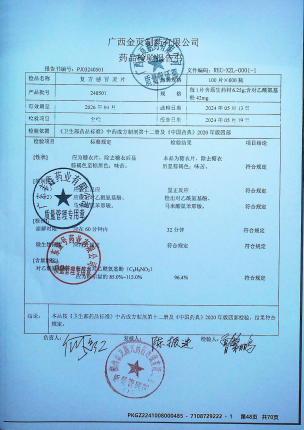 广西金页制药有限公司
药品检验报告书
报告书编号：PJ03240501 文件编号：REC-XZL-0001-1
检品名称 复方感冒灵片 100片×600瓶
产品批号 240501 规格 每1片含原药材6.25g;含对乙酰氨基酚42mg
有效期至 2026年04月 2024年05月13日
检验项目 全检 报告日期 2024年05月19日
检验依据 《卫生部药品标准》中药成方制剂第十二册及《中国药典》2020年版四部
检验项目 标准规定 检验结果 检验结论
【性状】 应为糖衣片，除去糖衣后显棕褐色至棕黑色；味苦。 本品为糖衣片，除去糖衣后显棕褐色；味苦。 符合规定
应呈正反应 显正反应 符合规定
对乙酰氨基酚、 检出对乙酰氨基酚、 符合规定
马来酸氯苯那敏。 马来酸氯苯那敏。
应在60分钟内 32分钟 符合规定
符合规定 符合规定
对乙酰氨基酚 (C₈H₉NO₂)
应为标示量的85.0%~115.0% 96.4% 符合规定
结论：本品按《卫生部药品标准》中药成方制剂第十二册及《中国药典》2020年版四部检验，结果符合规定。
负责人： 复核人： 检验人：
质量管理专用章
PKGZ2241008000485 - 7108729222 - 1 第48页 共70页